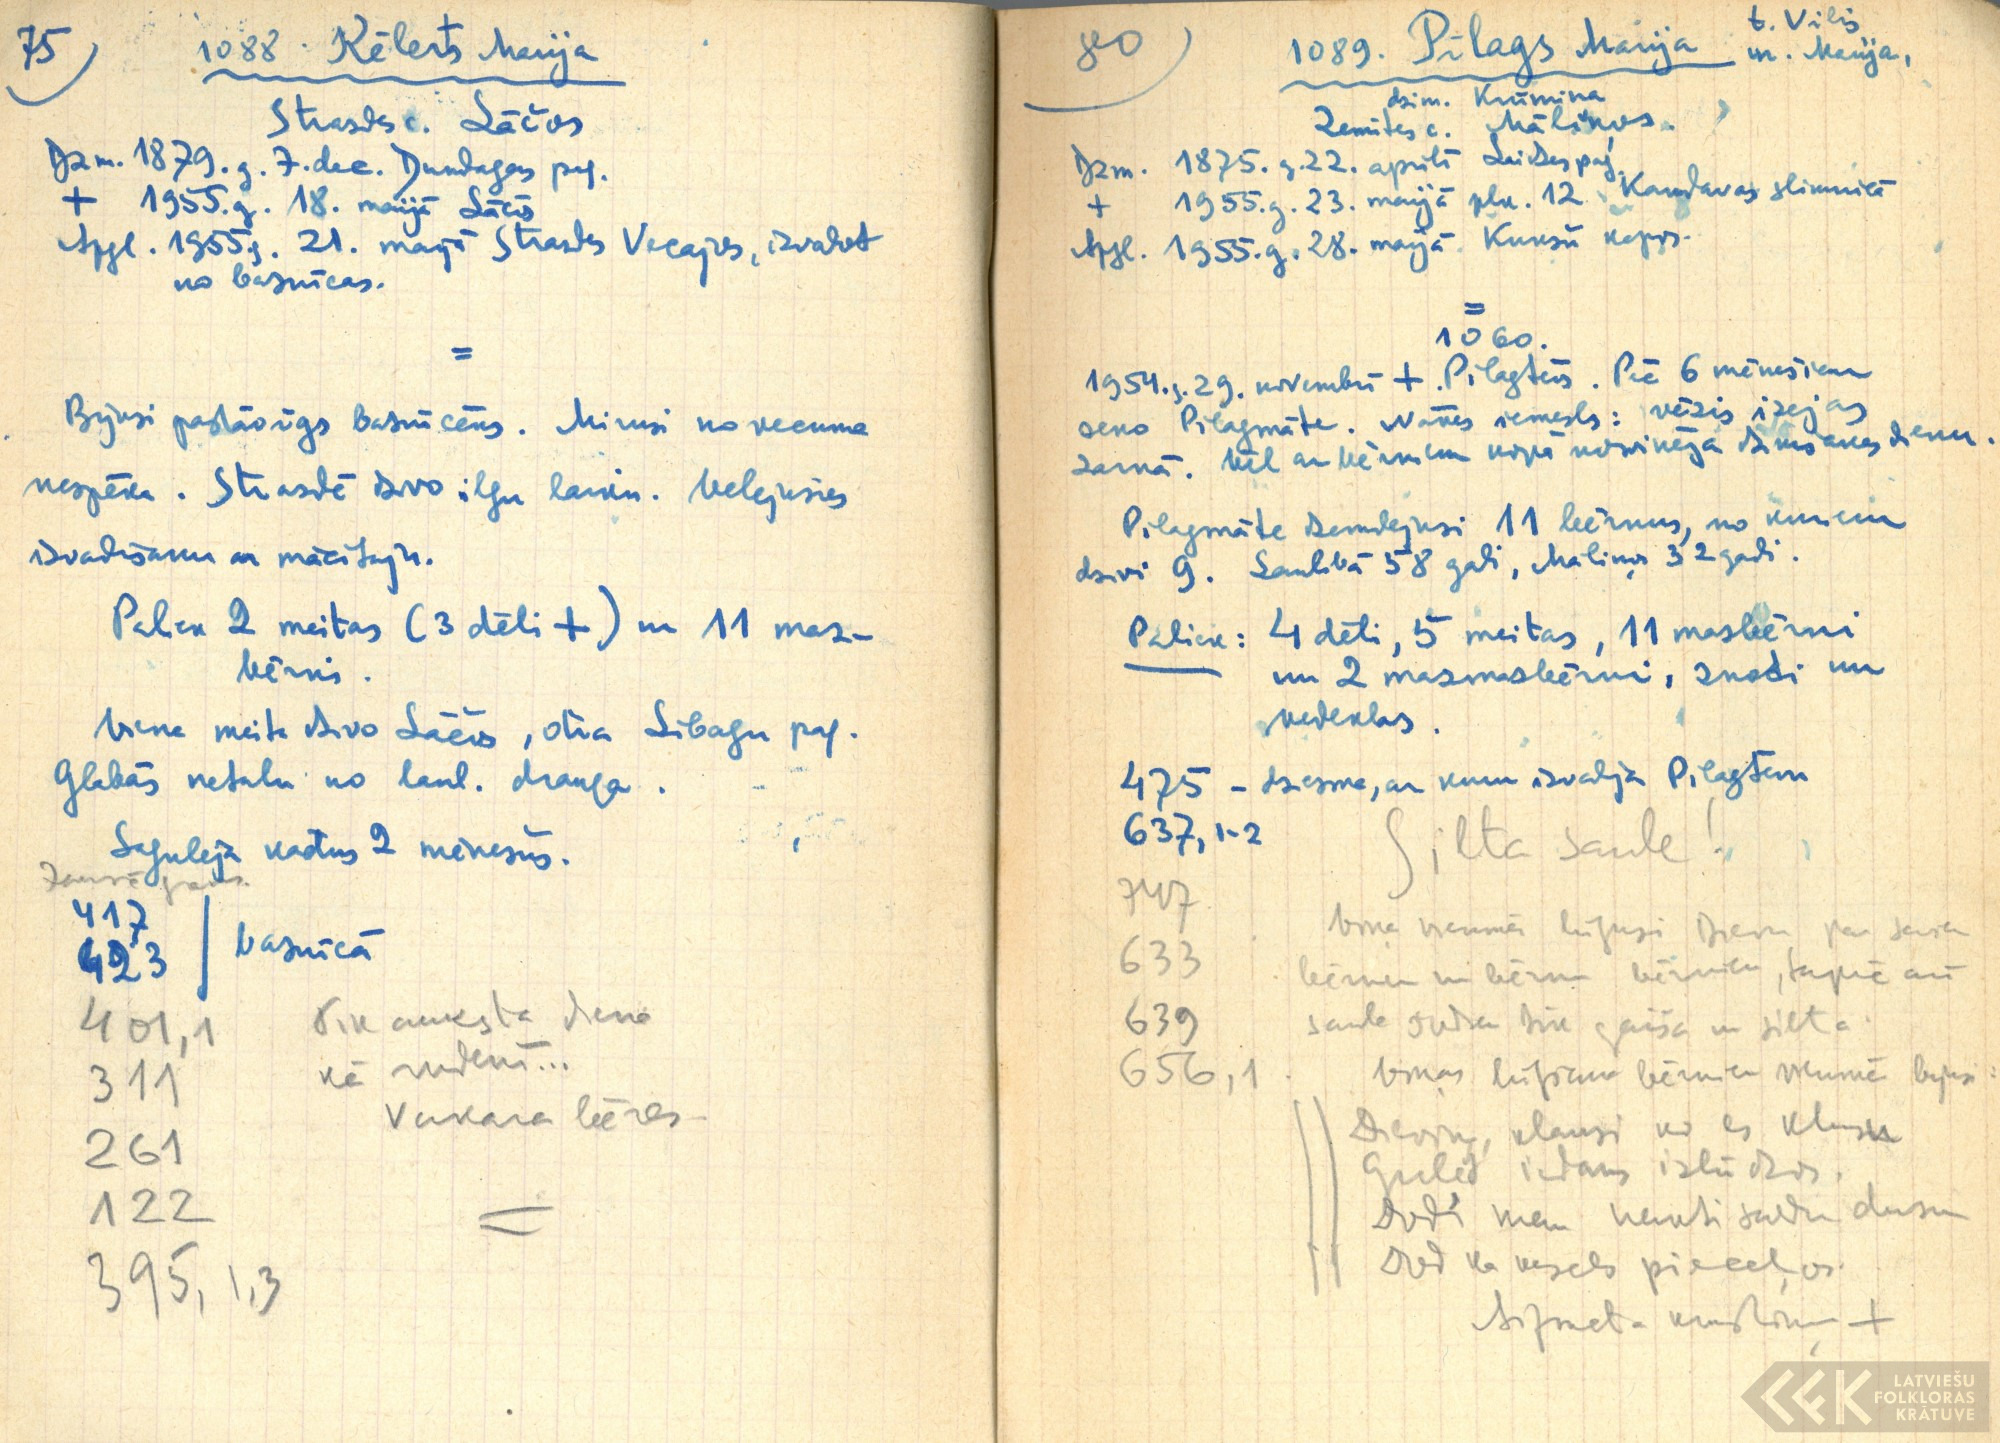 75)
1088. Ķēlerts Marija
Strazdes c. Lāčos
Dzm. 1879. g. 7. dec. Dundagas pag.
+ 1955. g. 18. maijā Lāčos
Apgl. 1955 g. 21. maijā Strazdes Vecajos, izvadot
no baznīcas.
=
Bijusi pastāvīgs baznīcēns. Mirusi no vecuma
nespēka. Strazdē dzīvo ilgu laiku. Vēlējusies
izvadīšanu ar mācītāju.
Paliek 2 meitas (3 dēli +) un 11 maz-
bērni.
Viena meita dzīvo Lāčos, otra Lībagu pag.
Glabās netālu no laul. drauga.
Saguleja kādus 2 mēnešus.
417
423 | baznīcā
401,1 Tik auksta diena
311 kā rudenī...
Vakara bēres-
261
122
=
395, 1,3
80)
1089. Pīlags Marija
t. Vilis
m. Marija,
dzim. Krūmiņa
Zemītes c. Māliņos.
Dzm. 1875. g. 22. aprīlī Laidzes pag.
+ 1955. g. 23. maijā plk. 12 Kandavas slimnīcā
Apgl. 1955. g. 28. maijā Kukšu kapos.
=
1060.
1954. g. 29. novembrī + Pīlagtēvs. Pēc 6 mēnešiem
seko Pīlagmāte. Nāves iemesls: vēzis izejas
zarnā. Vēl ar bērniem kopā nosvinēja dzimšanas dienu.
Pīlagmāte dzemdējusi 11 bērnus, no kuriem
dzīvi 9. Laulībā 58 gadi, Māliņos 32 gadi.
Paliek: 4 dēli, 5 meitas, 11 mazbērni
un 2 mazmazbērni, znoti un
vedeklas.
475 – dziesma, ar kuru izvadīja Pīlagtēvu
637, 1-2
Silta saule!
747
Viņa vienmēr lūgusi Dievu par saviem
633
bērniem un bērnu bērniem, tāpēc arī
639
saule šodien tik gaiša un silta.
656,1.
Viņas lūgšana bērniem vienmēr bijusi:
Dieviņ, klausi ko es
Gulēt iedams izlūdzos.
Dodi man nakti saldu dusu
Dod ka vesels pieceļos.
Aizmeta krustiņu +
LATVIEŠU
FOLKLORAS
KRĀTUVE